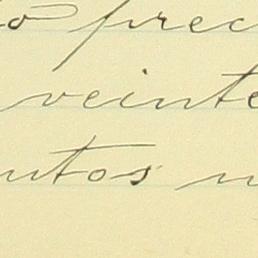 o prec
veinte
ntos